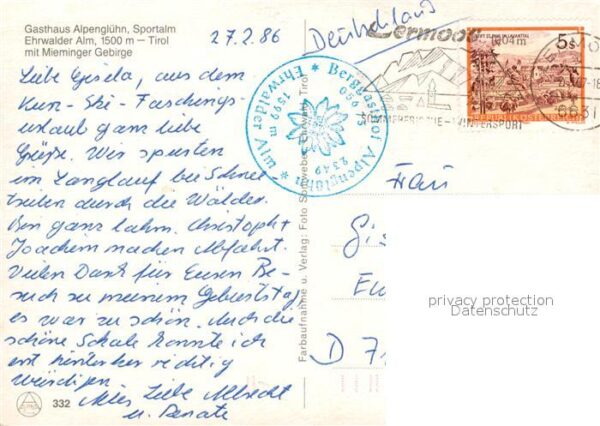 Gasthaus Alpenglühn, Sportalm
Ehrwalder Alm, 1500 m — Tirol
mit Mieminger Gebirge
27.2.86
Liebe Gisela, aus dem
Kurz-Ski-Faschings-
urlaub ganz liebe
Grüße. Wir spurten
im Langlauf bei Schnee-
treiben durch die Wälder.
Bin ganz lahm. Christoph +
Joachim machen Abfahrt.
Vielen Dank für Euren Be-
such zu meinem Geburtstag,
es war zu schön. Auch die
schöne Schale konnte ich
erst hinterher richtig
würdigen.
Alles Liebe Albrecht
u. Renate
332
Farbaufnahme u. Verlag: Foto Somweber, Ehrwald, Tirol
Berggasthof Alpenglühn
Ehrwalder Alm
1502 m
Deutschland
Lermoos
1004 m
SOMMERFRISCHE - WINTERSPORT
5 S
REPUBLIK ÖSTERREICH
6631
Frau
Gis
D 7
privacy protection
Datenschutz